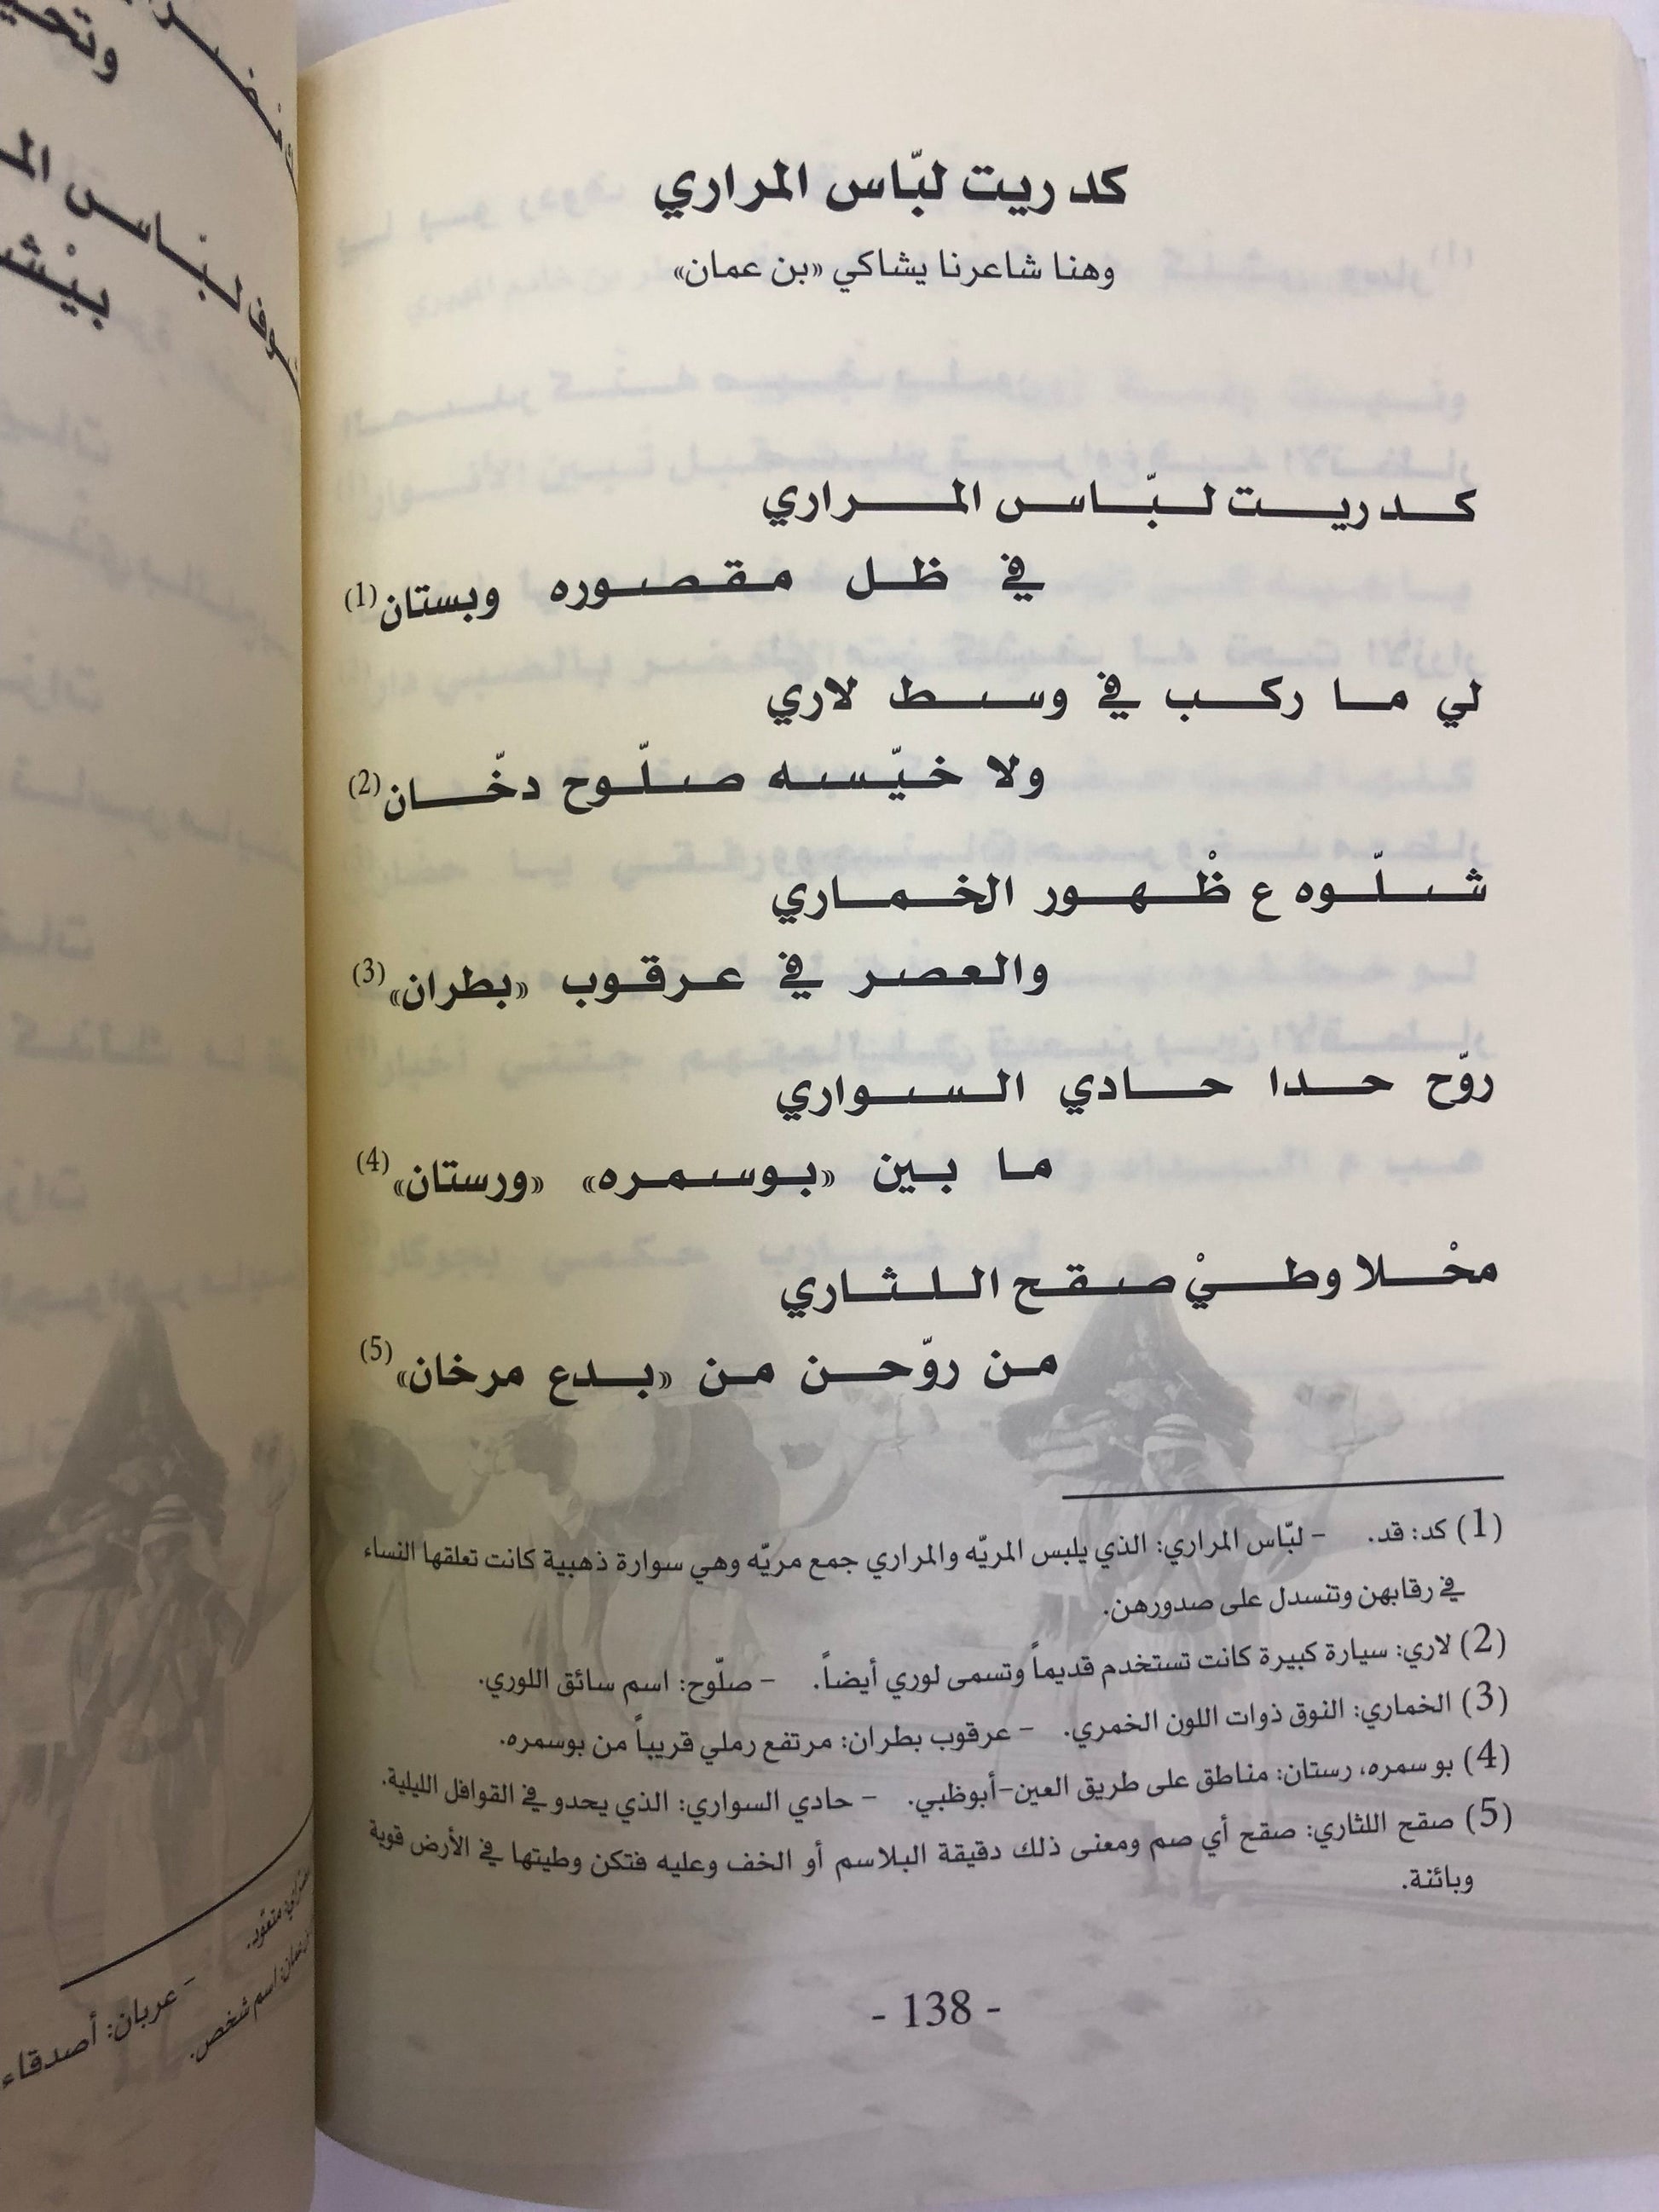 كد ريت لبّاس المراري
وهنا شاعرنا يشاكي «بن عمان»
كد ريت لبّاس المراري
في ظل مقصوره وبستان(1)
لي ما ركب في وسط لاري
ولا خيّسه صلّوح دخّان(2)
شلّوه ع ظْهور الخماري
والعصر في عرقوب «بطران»(3)
روّح حدا حادي السواري
ما بين «بوسمره» «ورستان»(4)
محْلا وطيْ صقح اللثاري
من روّحن من «بدع مرخان»(5)
(1) كد: قد. - لبّاس المراري: الذي يلبس المريّه والمراري جمع مريّه وهي سوارة ذهبية كانت تعلقها النساء
في رقابهن وتنسدل على صدورهن.
(2) لاري: سيارة كبيرة كانت تستخدم قديماً وتسمى لوري أيضاً. - صلّوح: اسم سائق اللوري.
(3) الخماري: النوق ذوات اللون الخمري. - عرقوب بطران: مرتفع رملي قريباً من بوسمره.
(4) بو سمره، رستان: مناطق على طريق العين-أبوظبي. - حادي السواري: الذي يحدو في القوافل الليلية.
(5) صقح اللثاري: صقح أي صم ومعنى ذلك دقيقة البلاسم أو الخف وعليه فتكن وطيتها في الأرض قوية
وبائنة.
- 138 -
لبّاس
- عربان: أصدقاء
اسم شخص.